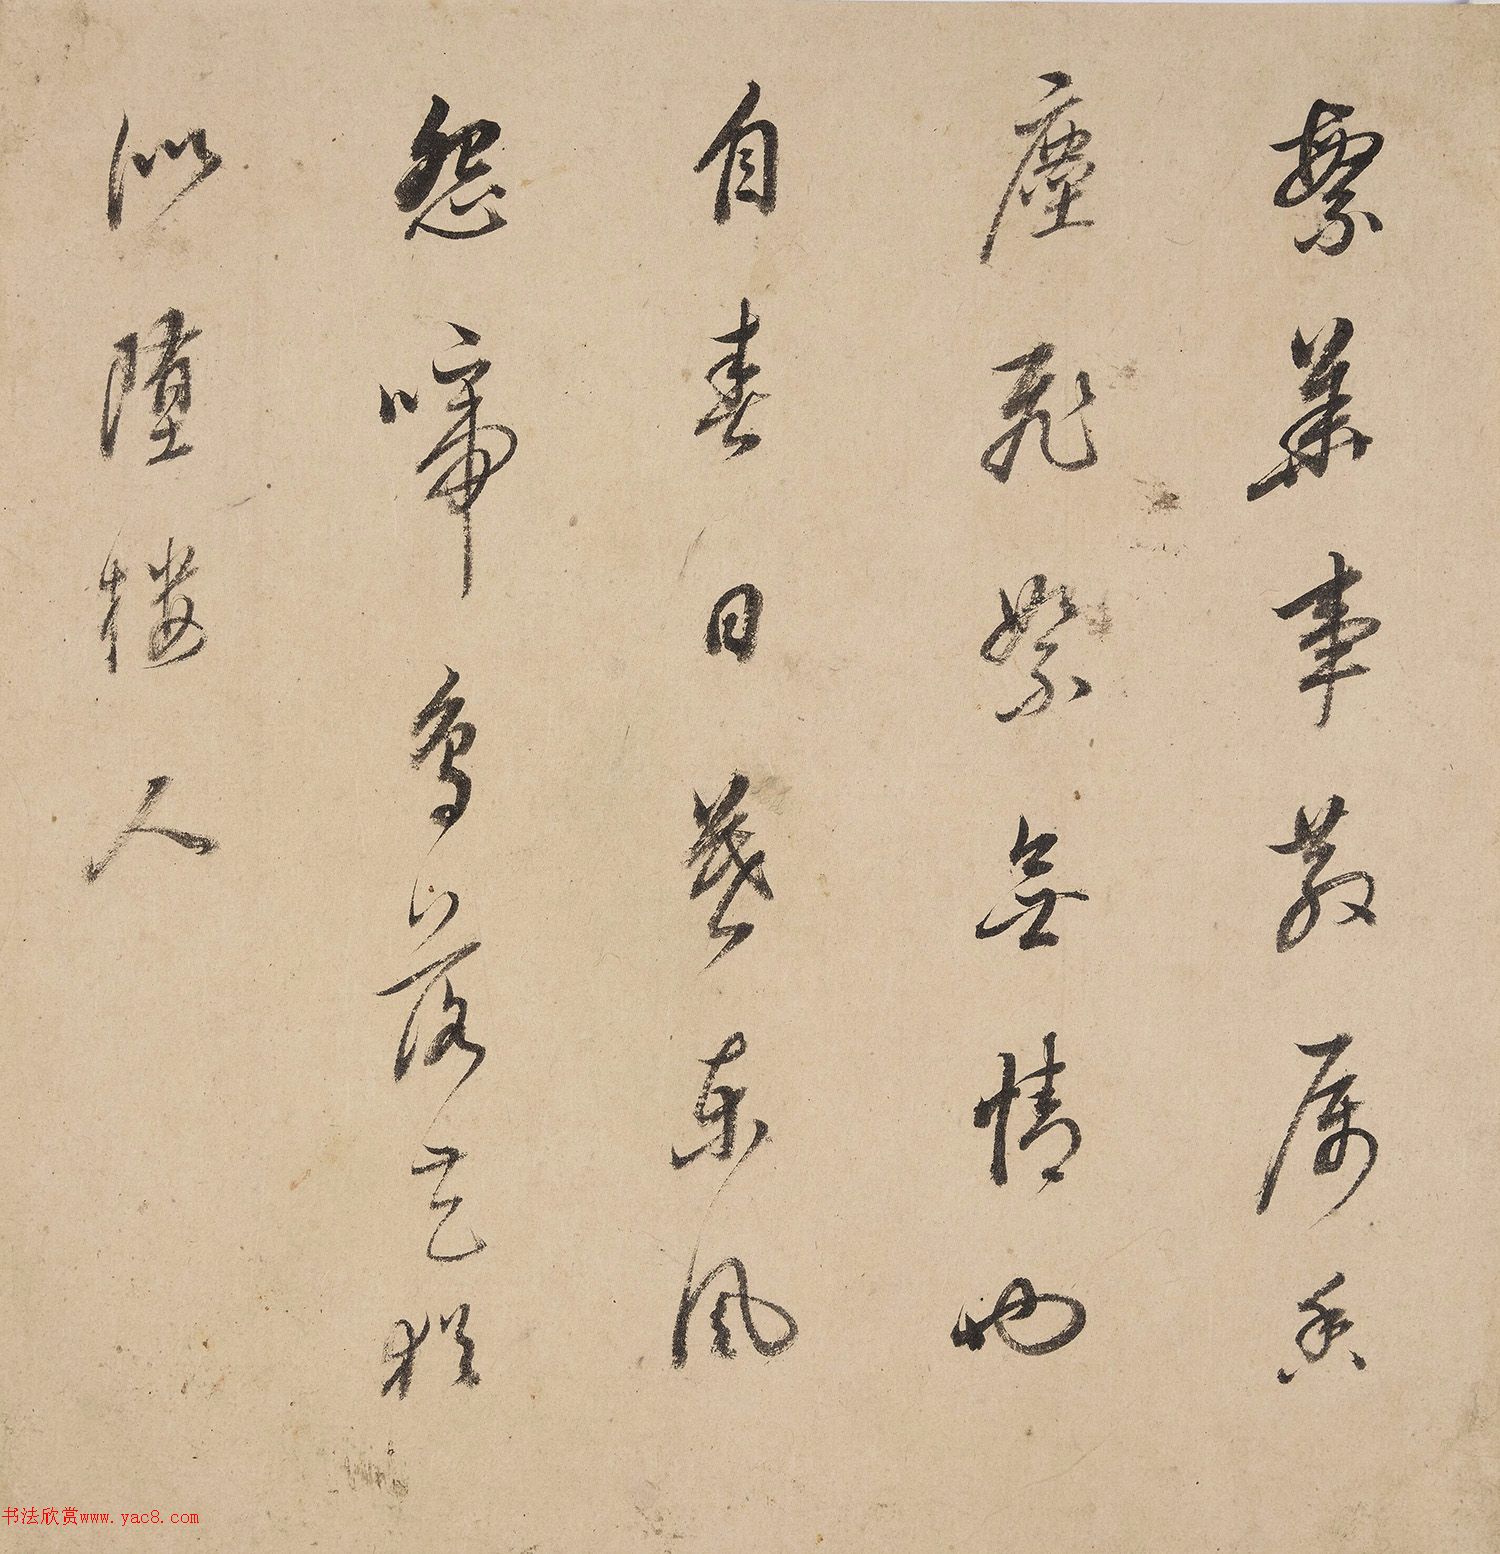 繁華事散属香
塵飛絮無情也
自春日暮東風
怨啼鳥落花猶
似墮樓人
书法欣赏www.yac8.com